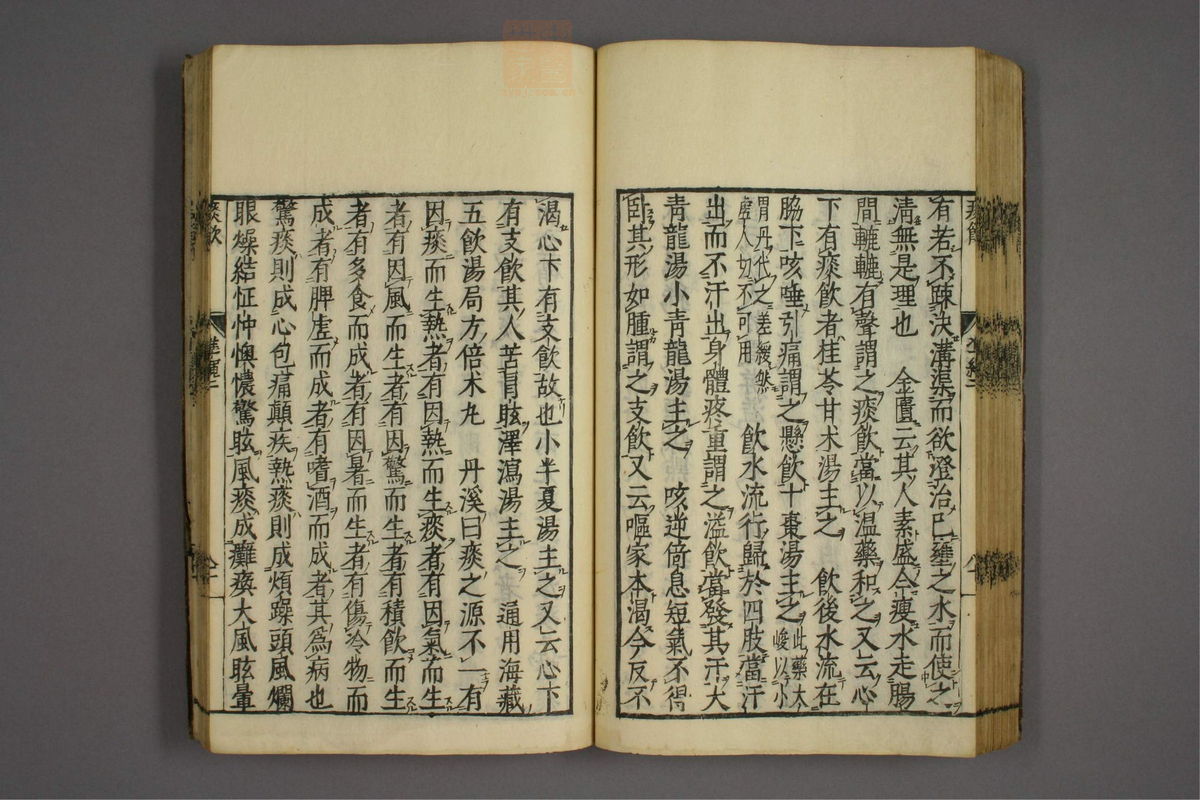 有若不疎決溝渠而欲澄治已壅之水而使之
清無是理也　金匱云其人素盛今瘦水走腸
間轆轆有聲謂之痰飲當以溫藥和之又云心
下有痰飲者桂苓甘朮湯主之　飲後水流在
脇下咳唾引痛謂之懸飲十棗湯主之此藥太峻以小
胃丹代之差緩然虛人切不可用　飲水流行歸於四肢當汗
出而不汗出身體疼重謂之溢飲當發其汗大
青龍湯小青龍湯主之　咳逆倚息短氣不得
臥其形如腫謂之支飲又云嘔家本渴今反不
渴心下有支飲故也小半夏湯主之又云心下
有支飲其人苦冒眩澤瀉湯主之　通用海藏
五飲湯局方倍朮丸　丹溪曰痰之源不一有
因痰而生熱者有因熱而生痰者有因氣而生
者有因風而生者有因驚而生者有積飲而生
者有多食而成者有因暑而生者有傷冷物而
成者有脾虛而成者有嗜酒而成者其為病也
驚痰則成心包痛顛疾熱痰則成煩躁頭風爛
眼燥結怔忡懊憹驚眩風痰成癱瘓大風眩暈
痰飲